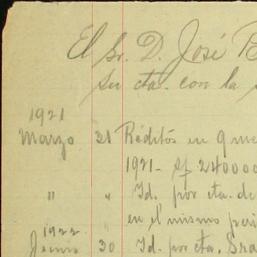 El Sr. D. José B
su cta. con la
1921
Marzo 31 Réditos en 9 me
1921 - s/ 240000
" " Id. por cta. de
en el mismo peri
1922
Junio 30 Id. por cta. Sra